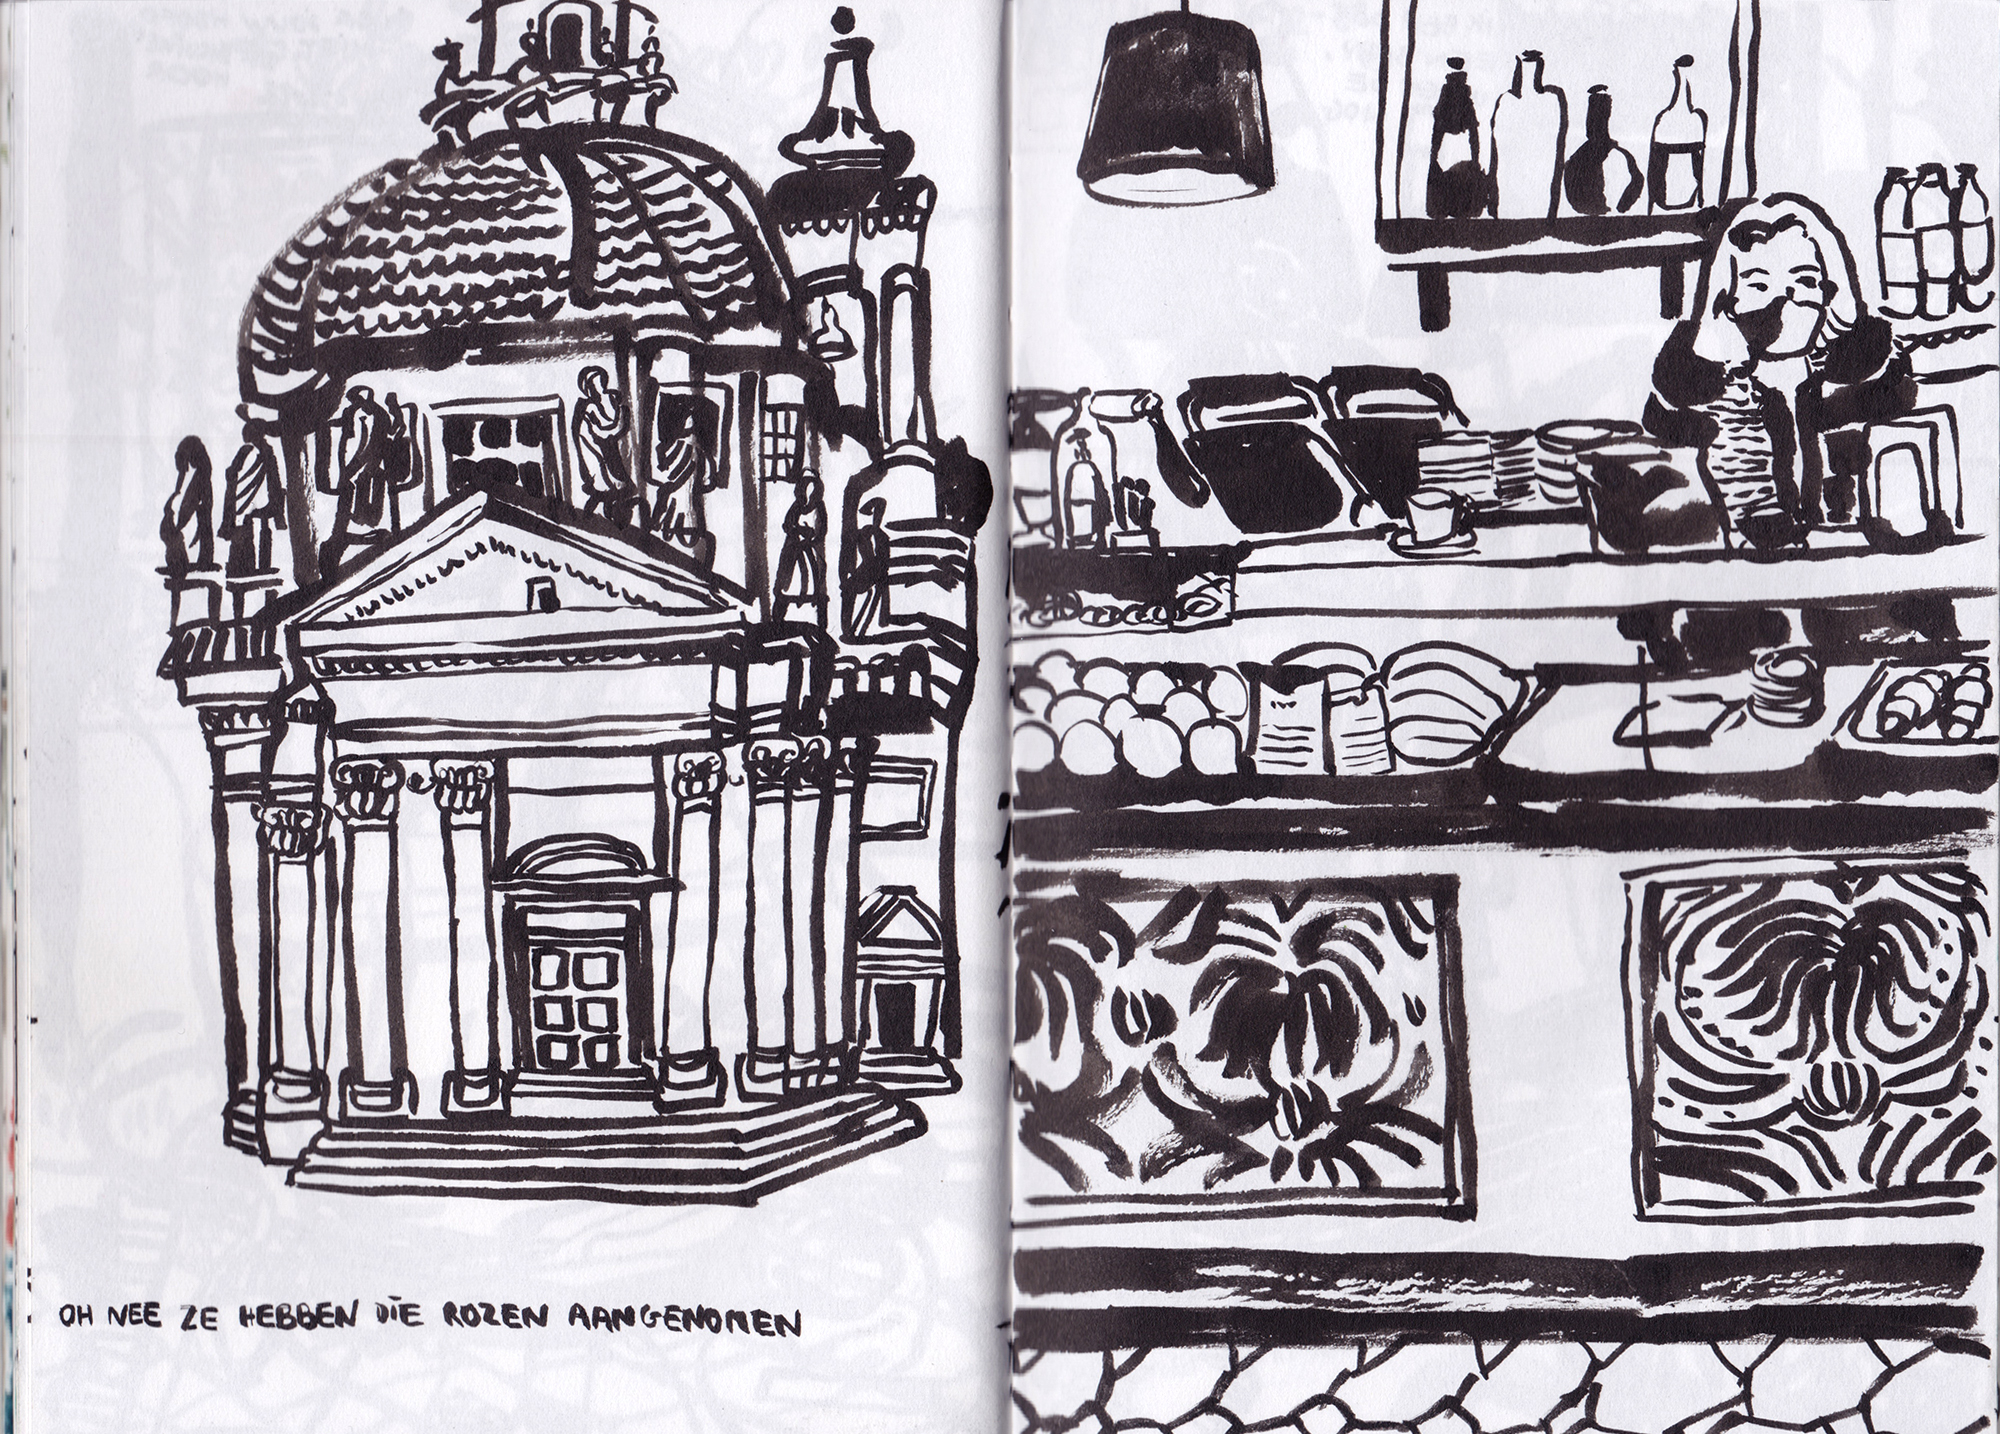 OH NEE ZE HEBBEN DIE ROZEN AANGENOMEN